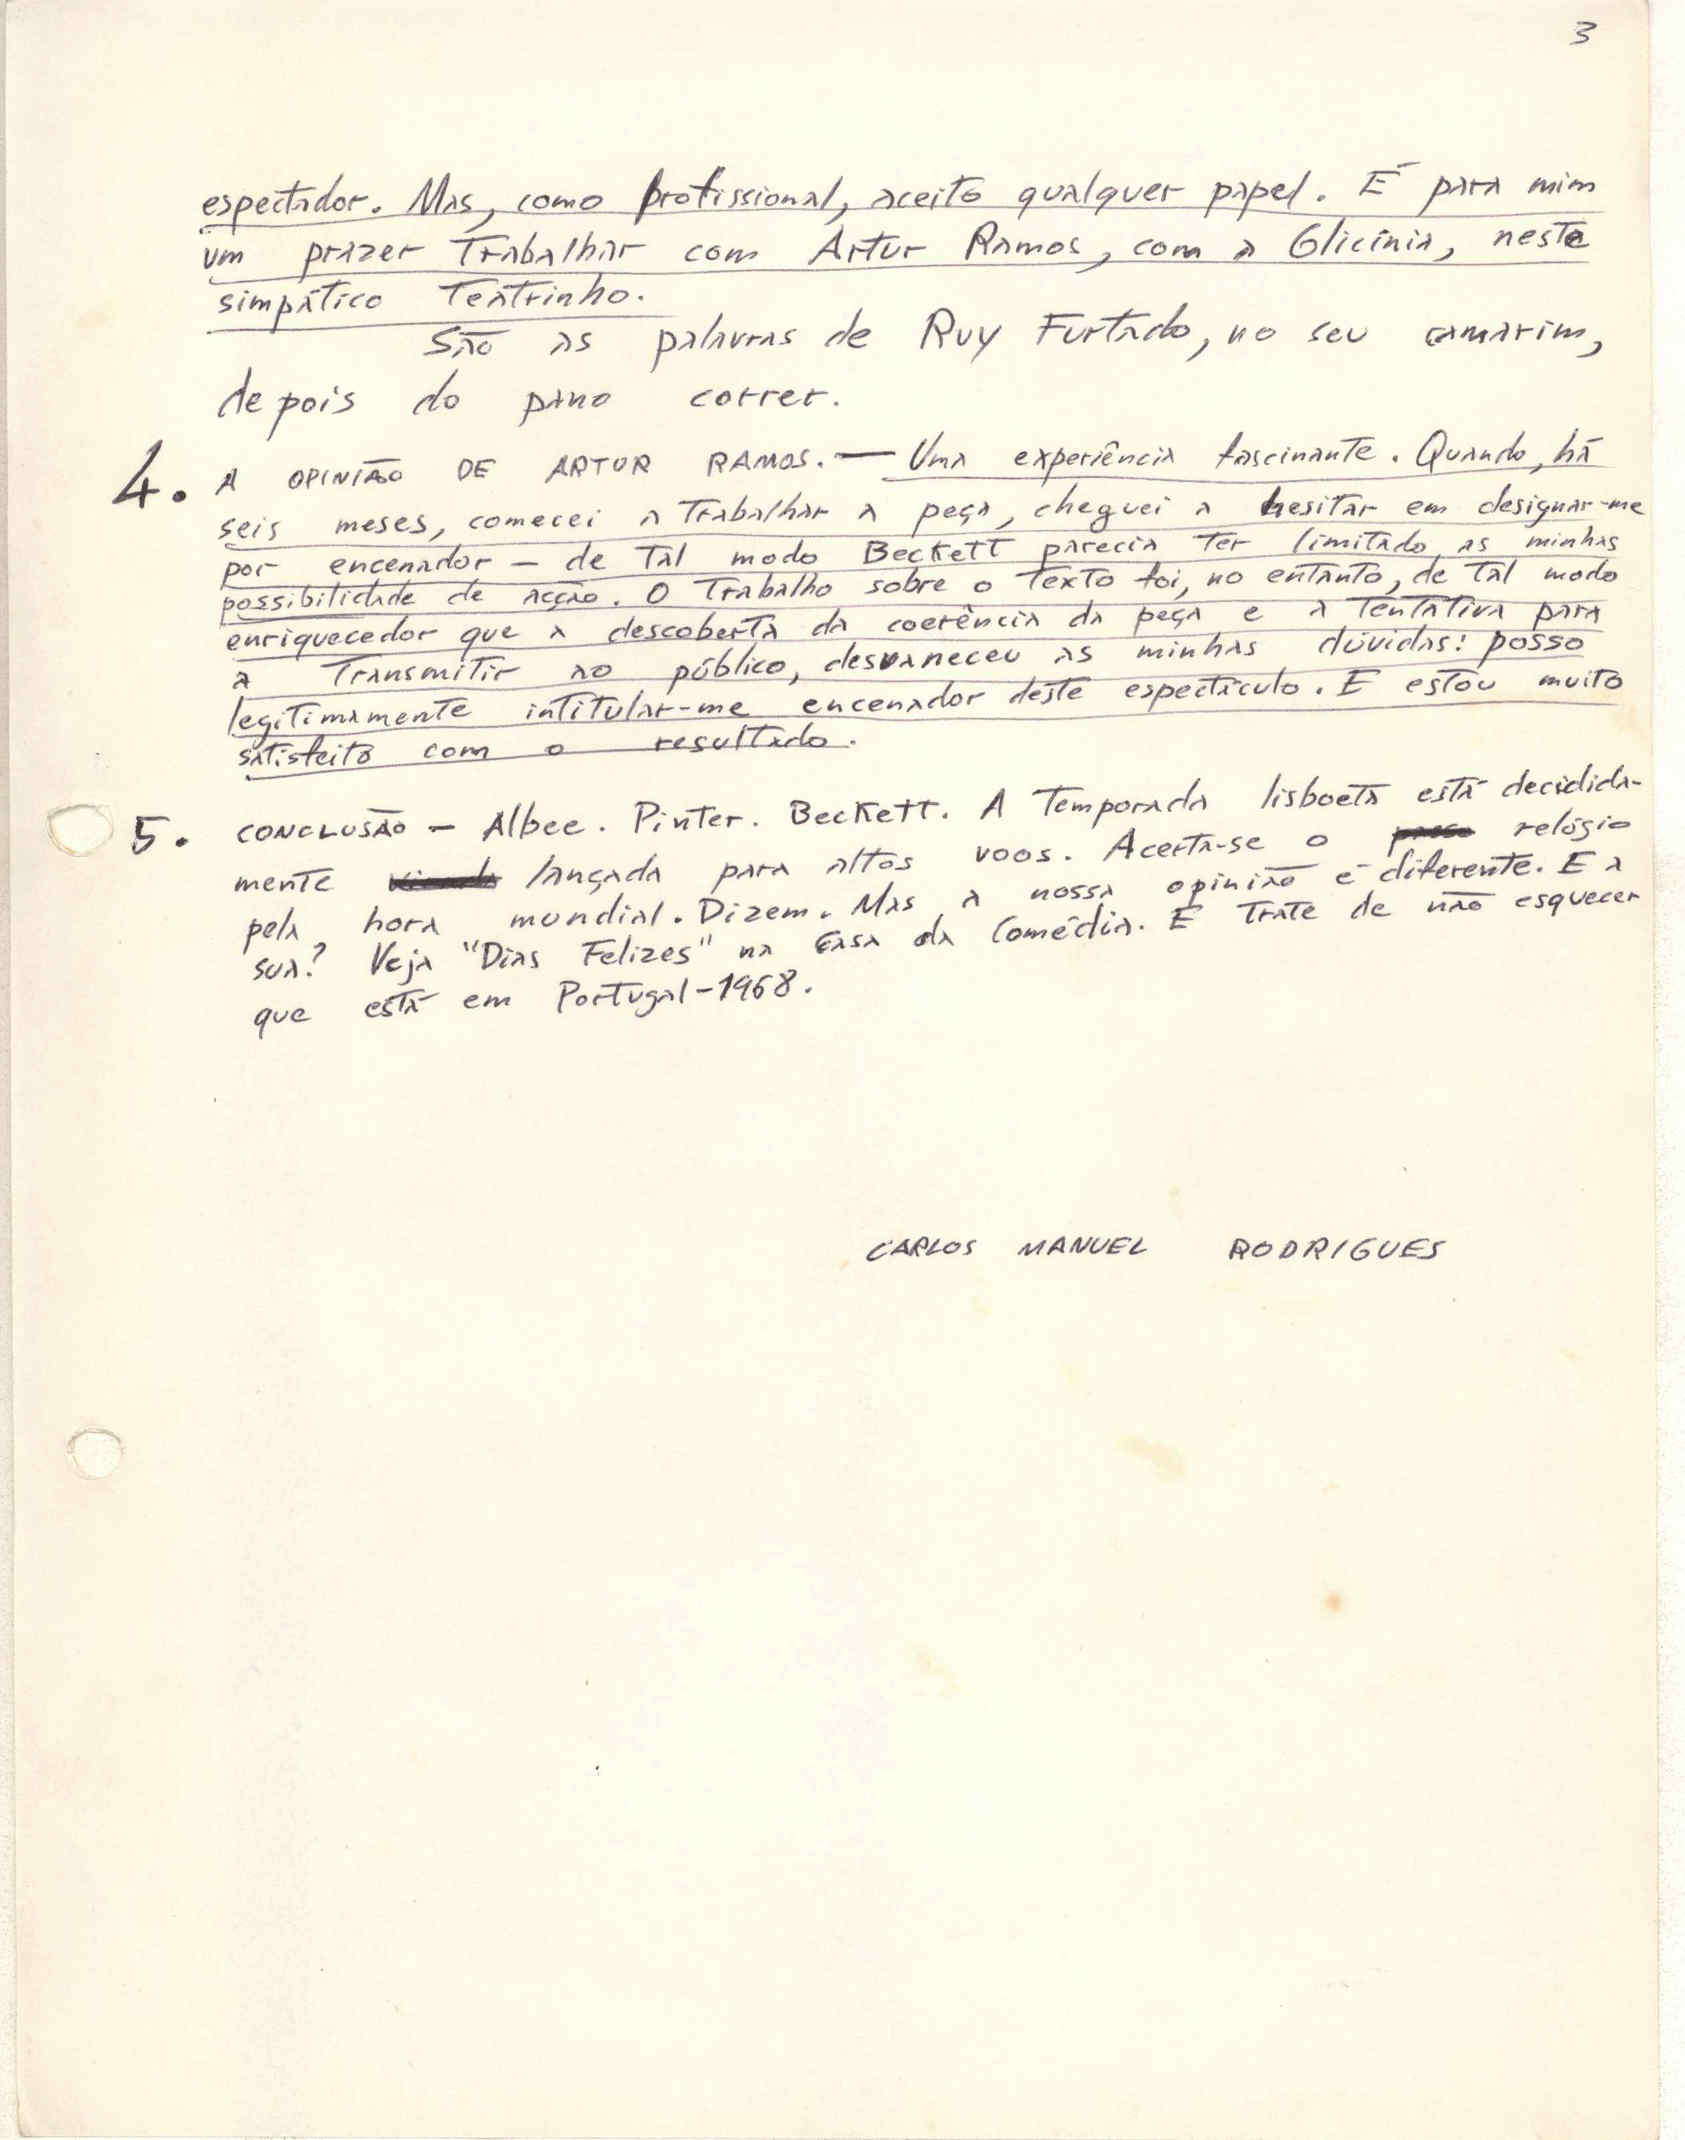 3
espectador. Mas, como profissional, aceito qualquer papel. É para mim
um prazer trabalhar com Artur Ramos, com a Glicínia, neste
simpático teatrinho.
São as palavras de Ruy Furtado, no seu camarim,
depois do pano correr.
4. A OPINIÃO DE ARTUR RAMOS. — Uma experiência fascinante. Quando, há
seis meses, comecei a trabalhar a peça, cheguei a hesitar em designar-me
por encenador — de tal modo Beckett parecia ter limitado as minhas
possibilidade de acção. O trabalho sobre o texto foi, no entanto, de tal modo
enriquecedor que a descoberta da coerência da peça e a tentativa para
a transmitir ao público, desvaneceu as minhas dúvidas: posso
legitimamente intitular-me encenador deste espectáculo. E estou muito
satisfeito com o resultado.
5. CONCLUSÃO — Albee. Pinter. Beckett. A temporada lisboeta está decidida-
mente lançada para altos voos. Acerta-se o relógio
pela hora mundial. Dizem. Mas a nossa opinião é diferente. E a
sua? Veja "Dias Felizes" na Casa da Comédia. E trate de não esquecer
que está em Portugal-1968.
CARLOS MANUEL RODRIGUES